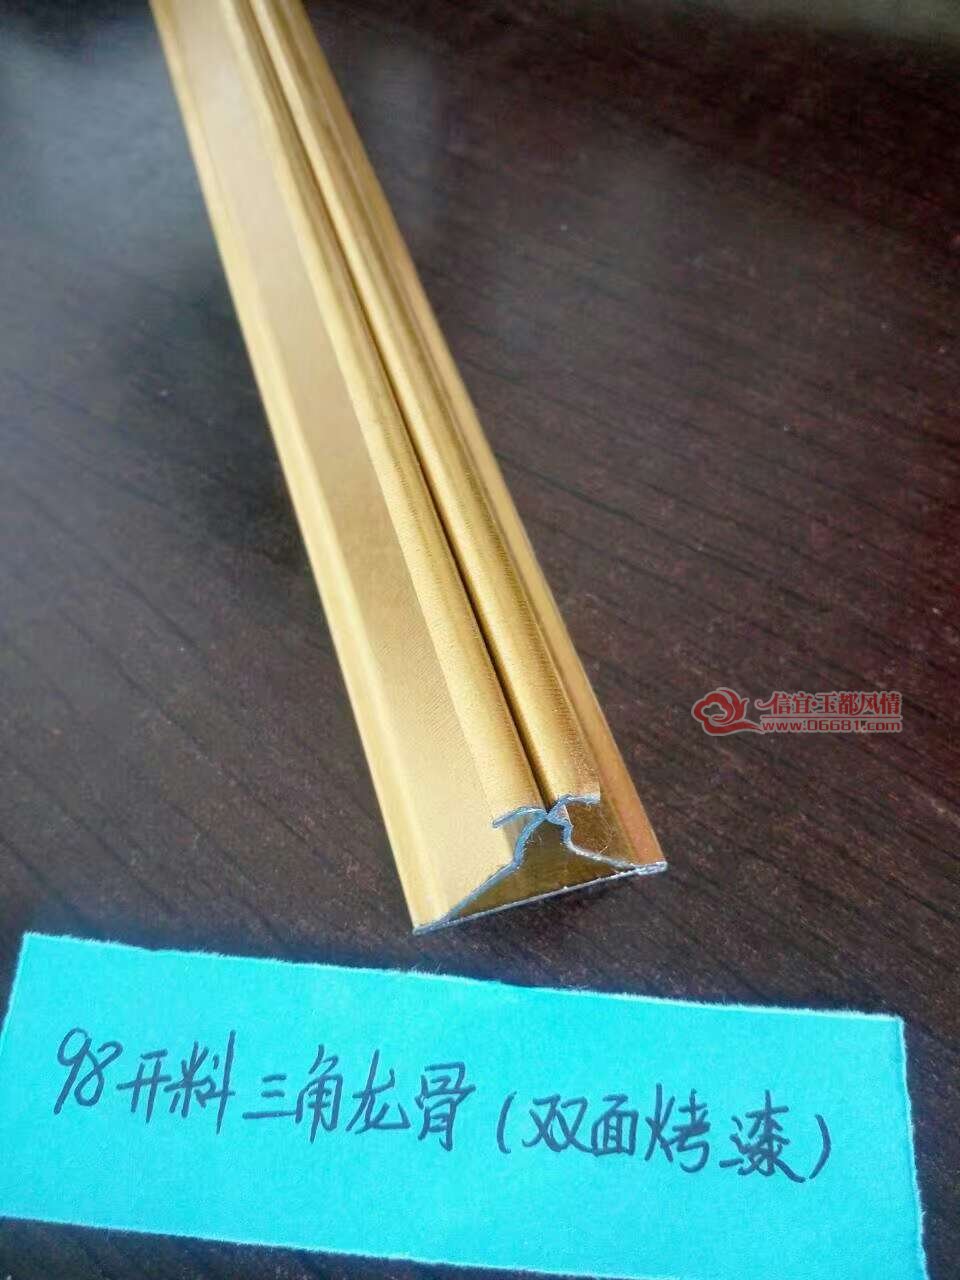 信宜·玉都风情
www.06681.com
98开料三角龙骨(双面烤漆)